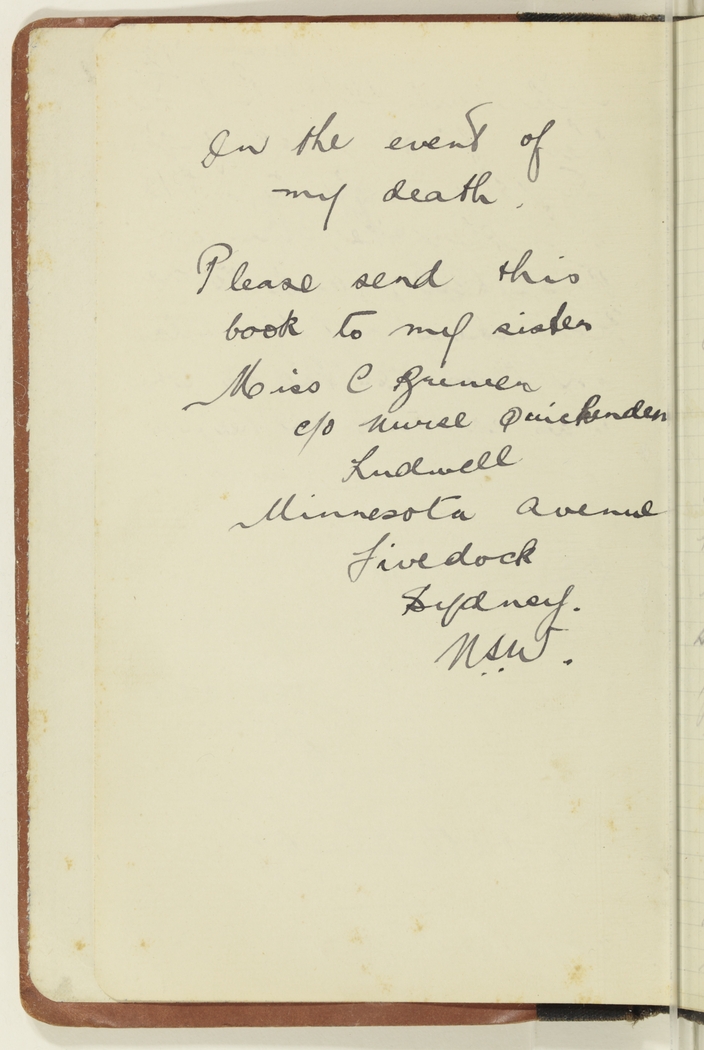 In the event of
my death.
Please send this
book to my sister
Miss C
c/o Nurse Quickenden
Ludwell
Minnesota Avenue
Fivedock
Sydney.
N.S.W.